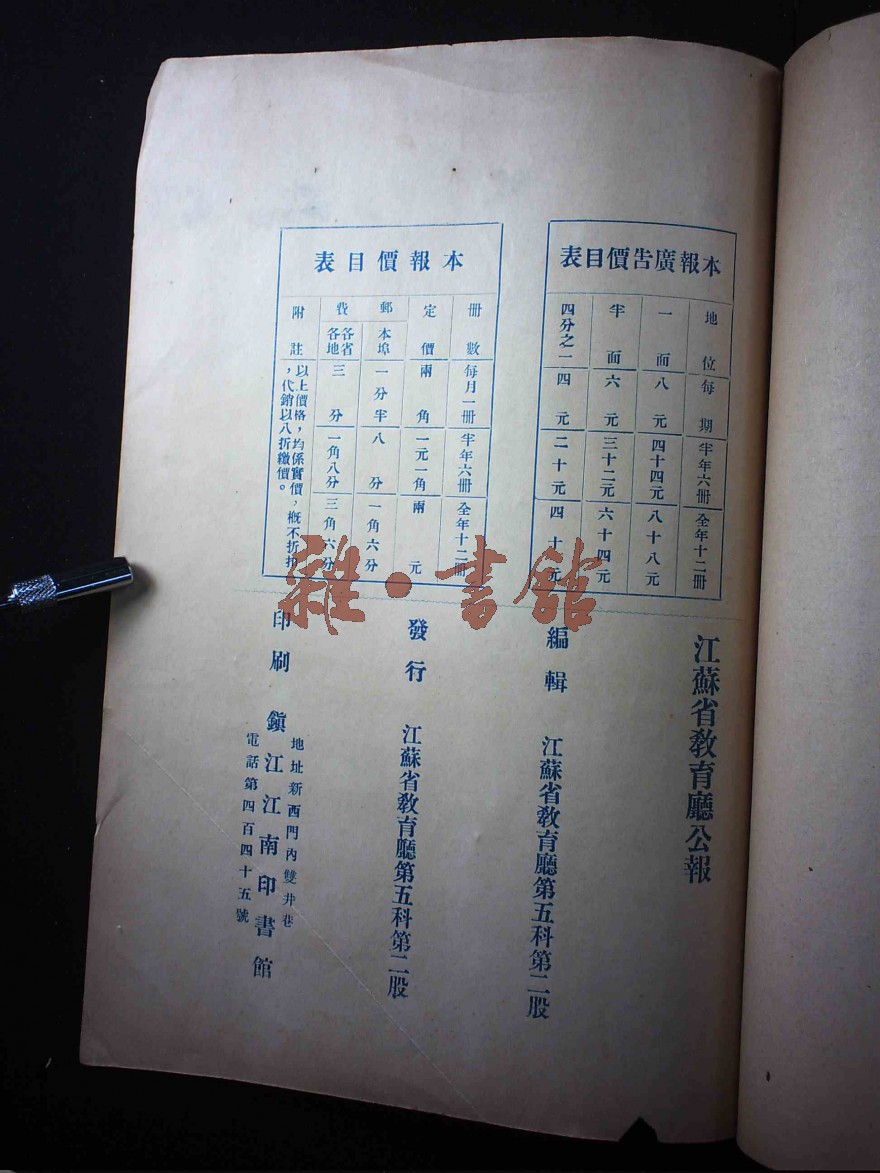 本報廣告價目表
地位 每期 半年六冊 全年十二冊
一面 八元 四十四元 八十八元
半面 六元 三十二元 六十四元
四分之一 四元 二十元 四十元
本報價目表
冊數 每月一冊 半年六冊 全年十二冊
定價 兩角 一元一角 兩元
郵費
本埠 一分半 八分 一角六分
各省各地 三分 一角八分 三角六分
附註 以上價格，均係實價，概不折扣
，代銷以八折繳價。
江蘇省教育廳公報
編輯 江蘇省教育廳第五科第二股
發行 江蘇省教育廳第五科第二股
印刷 鎮江江南印書館
地址新西門內雙井巷
電話第四百四十五號
雜·書館